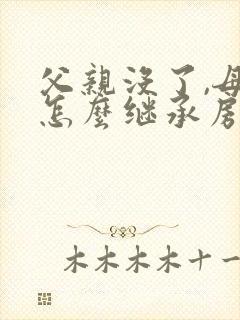 父親没了,母
怎麼继承房
木木木木十一